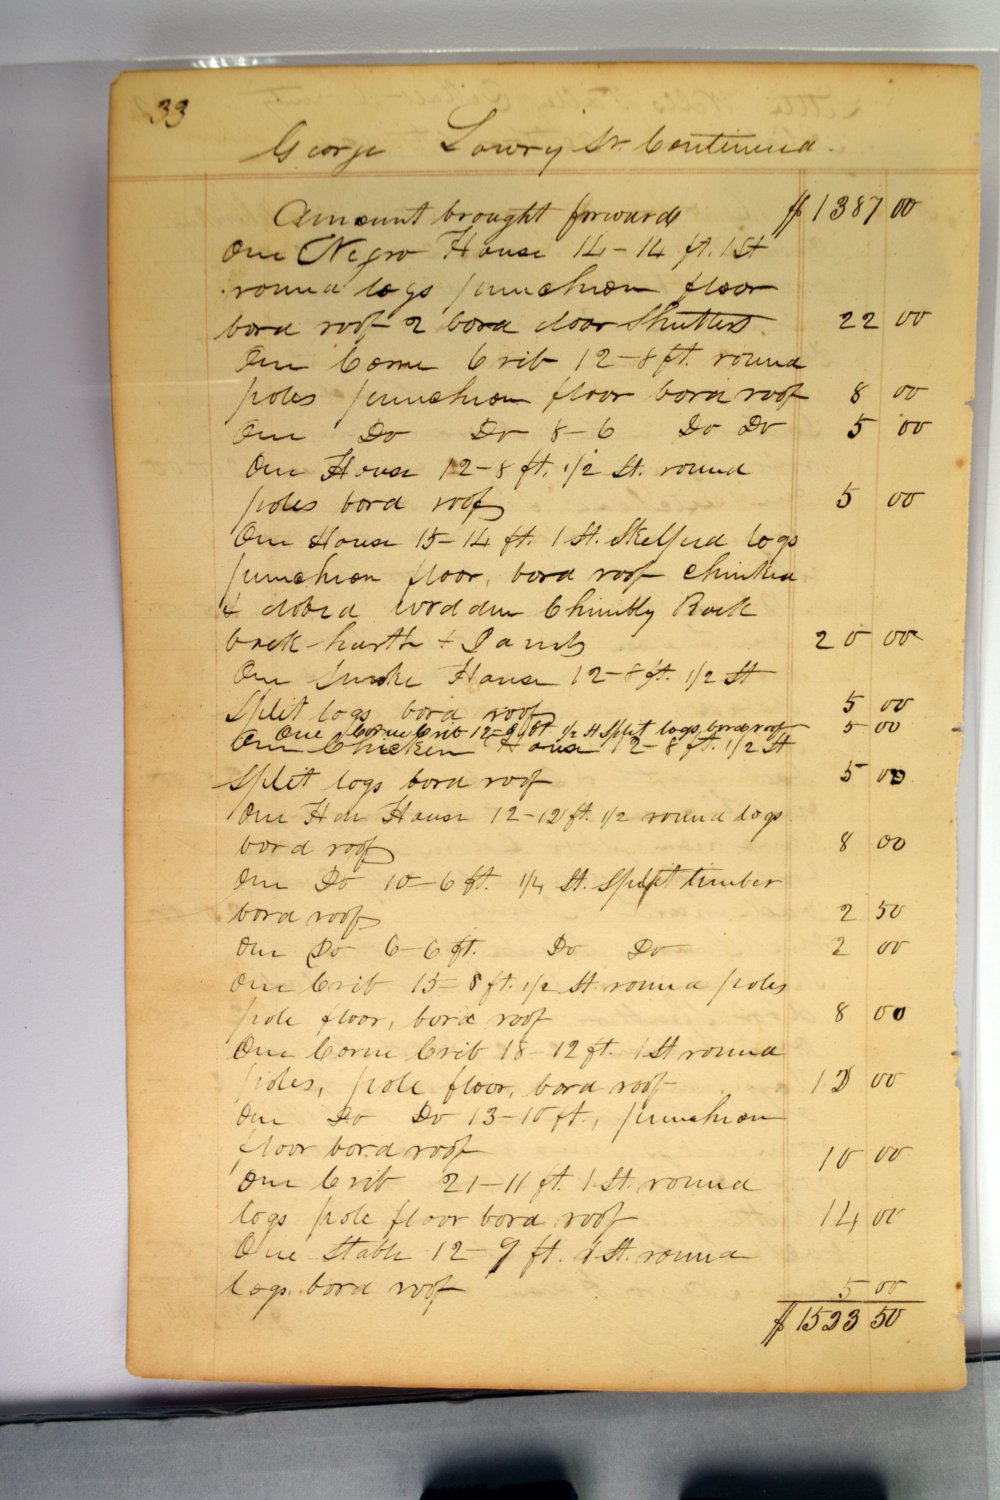 33
George Lowry Sr. Continued.
Amount brought forward $1387 00
One Negro House 14-14 ft. 1 St
round logs punchion floor
bord roof 2 bord door Shutters. 22 00
One Corne Crib 12-8 ft. round
poles punchion floor bord roof 8 00
One Do Do 8-6 Do Do 5 00
One House 12-8 ft. 1/2 St. round
poles bord roof 5 00
One House 15-14 ft. 1 St. Skelped logs
punchion floor, bord roof chinked
& dobed wooden Chimbly Rock
back harth & Jambs 20 00
One Smoke House 12-8 ft. 1/2 St
Split logs bord roof 5 00
One Corne Crib 12-8 ft 1/2 St Split logs bord roof 5 00
One Chicken House 12-8 ft. 1/2 St
Split logs bord roof 5 00
One Hen House 12-12 ft. 1/2 round logs
bord roof 8 00
One Do 10-6 ft. 1/4 St. Split timber
bord roof 2 50
One Do 6-6 ft. Do Do 2 00
One Crib 15-8 ft. 1/2 St. round poles
pole floor, bord roof 8 00
One Corne Crib 18-12 ft. 1 St round
poles, pole floor, bord roof 12 00
One Do Do 13-10 ft., punchion
floor bord roof 10 00
One Crib 21-11 ft. 1 St. round
logs pole floor bord roof 14 00
One Stable 12-9 ft. 1 St. round
logs. bord roof 5 00
$1523 50